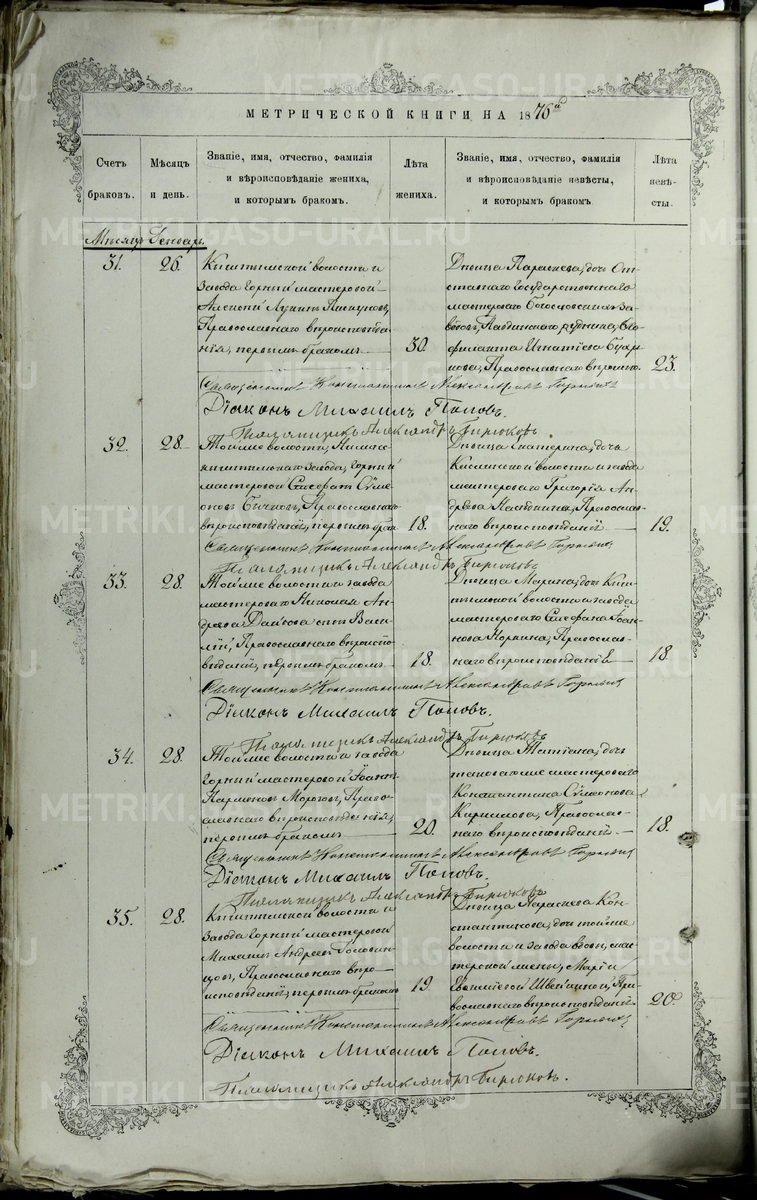 МЕТРИЧЕСКОЙ КНИГИ НА 1876й
Счетъ браковъ.
Мѣсяцъ и день.
Званіе, имя, отчество, фамилія
и вѣроисповѣданіе жениха,
и которымъ бракомъ.
Лѣта жениха.
Званіе, имя, отчество, фамилія
и вѣроисповѣданіе невѣсты,
и которымъ бракомъ
Лѣта невѣ-
сты.
Мѣсяцъ Генварь
31. 26.
Кыштымской волости и
завода горный мастеровой
Алексій Лукинъ
Православнаго вѣроисповѣда-
нія, первымъ бракомъ
30.
Дѣвица Параскева, дочь От-
ставнаго государственнаго
мастероваго Богословскихъ За-
водовъ, рудника, Ѳео-
филакта Игнатіева
Православнаго вѣроиспо.
23.
Священникъ Константинъ Александровъ
Діаконъ Михаилъ Поповъ.
Псаломщикъ Александръ Бирюковъ
32. 28.
Той же волости, Нижне-
кыштымскаго завода, горный
мастеровой Стефанъ Сѵме-
оновъ Бычковъ, Православнаго
вѣроисповѣданій, первымъ бра
18.
Дѣвица Екатерина, дочь
Каслинской волости и завода
мастероваго Григорія Ан-
дреева Православ-
наго вѣроисповѣданій
19.
Священникъ Константинъ Александровъ
Псаломщикъ Александръ Бирюковъ
33. 28.
Той же волости и завода
мастероваго Николая Ан-
дреева сынъ Васи-
лій, Православнаго вѣроиспо-
вѣданій, первымъ бракомъ
18.
Дѣвица Марина, дочь Кыш-
тымской волости и завода
мастероваго Стефана Іоан-
нова Православ-
наго вѣроисповѣданій
18.
Священникъ Константинъ Александровъ
Діаконъ Михаилъ Поповъ.
Псаломщикъ Александръ Бирюковъ
34. 28.
Той же волости и завода
горный мастеровой Іоаннъ
Морозовъ, Право-
славнаго вѣроисповѣданія,
первымъ бракомъ
20.
Дѣвица Татіана, дочь
таковаго же мастероваго
Константина Сѵмеонова
Кириллова, Православ-
наго вѣроисповѣданій
18.
Священникъ Константинъ Александровъ
Діаконъ Михаилъ Поповъ.
Псаломщикъ Александръ Бирюковъ
35. 28.
Кыштымской волости и
завода горный мастеровой
Михаилъ Андреевъ Головин-
цовъ, Православнаго вѣро-
исповѣданій, первымъ бракомъ
19.
Дѣвица Параскева Кон-
стантинова, дочь той же
волости и завода вдовы, мас-
терской жены, Маріи
Евѳиміевой Швейкиной, Пра-
вославнаго вѣроисповѣданій
20.
Священникъ Константинъ Александровъ
Діаконъ Михаилъ Поповъ.
Псаломщикъ Александръ Бирюковъ.
METRIKI.GASO-URAL.RU